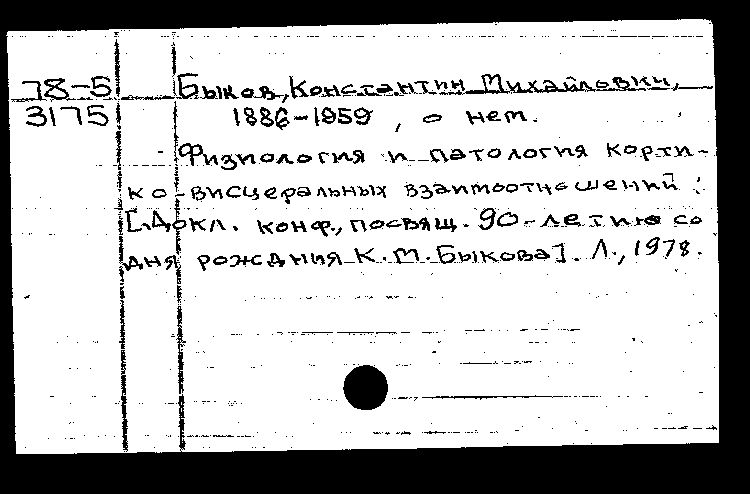 78-5 Быков, Константин Михайлович,
3175 1886-1959, о нем.
Физиология и патология корти-
ко-висцеральных взаимоотношений:
[Докл. конф., посвящ. 90-летию со
дня рождния К.М.Быкова]. Л., 1978.